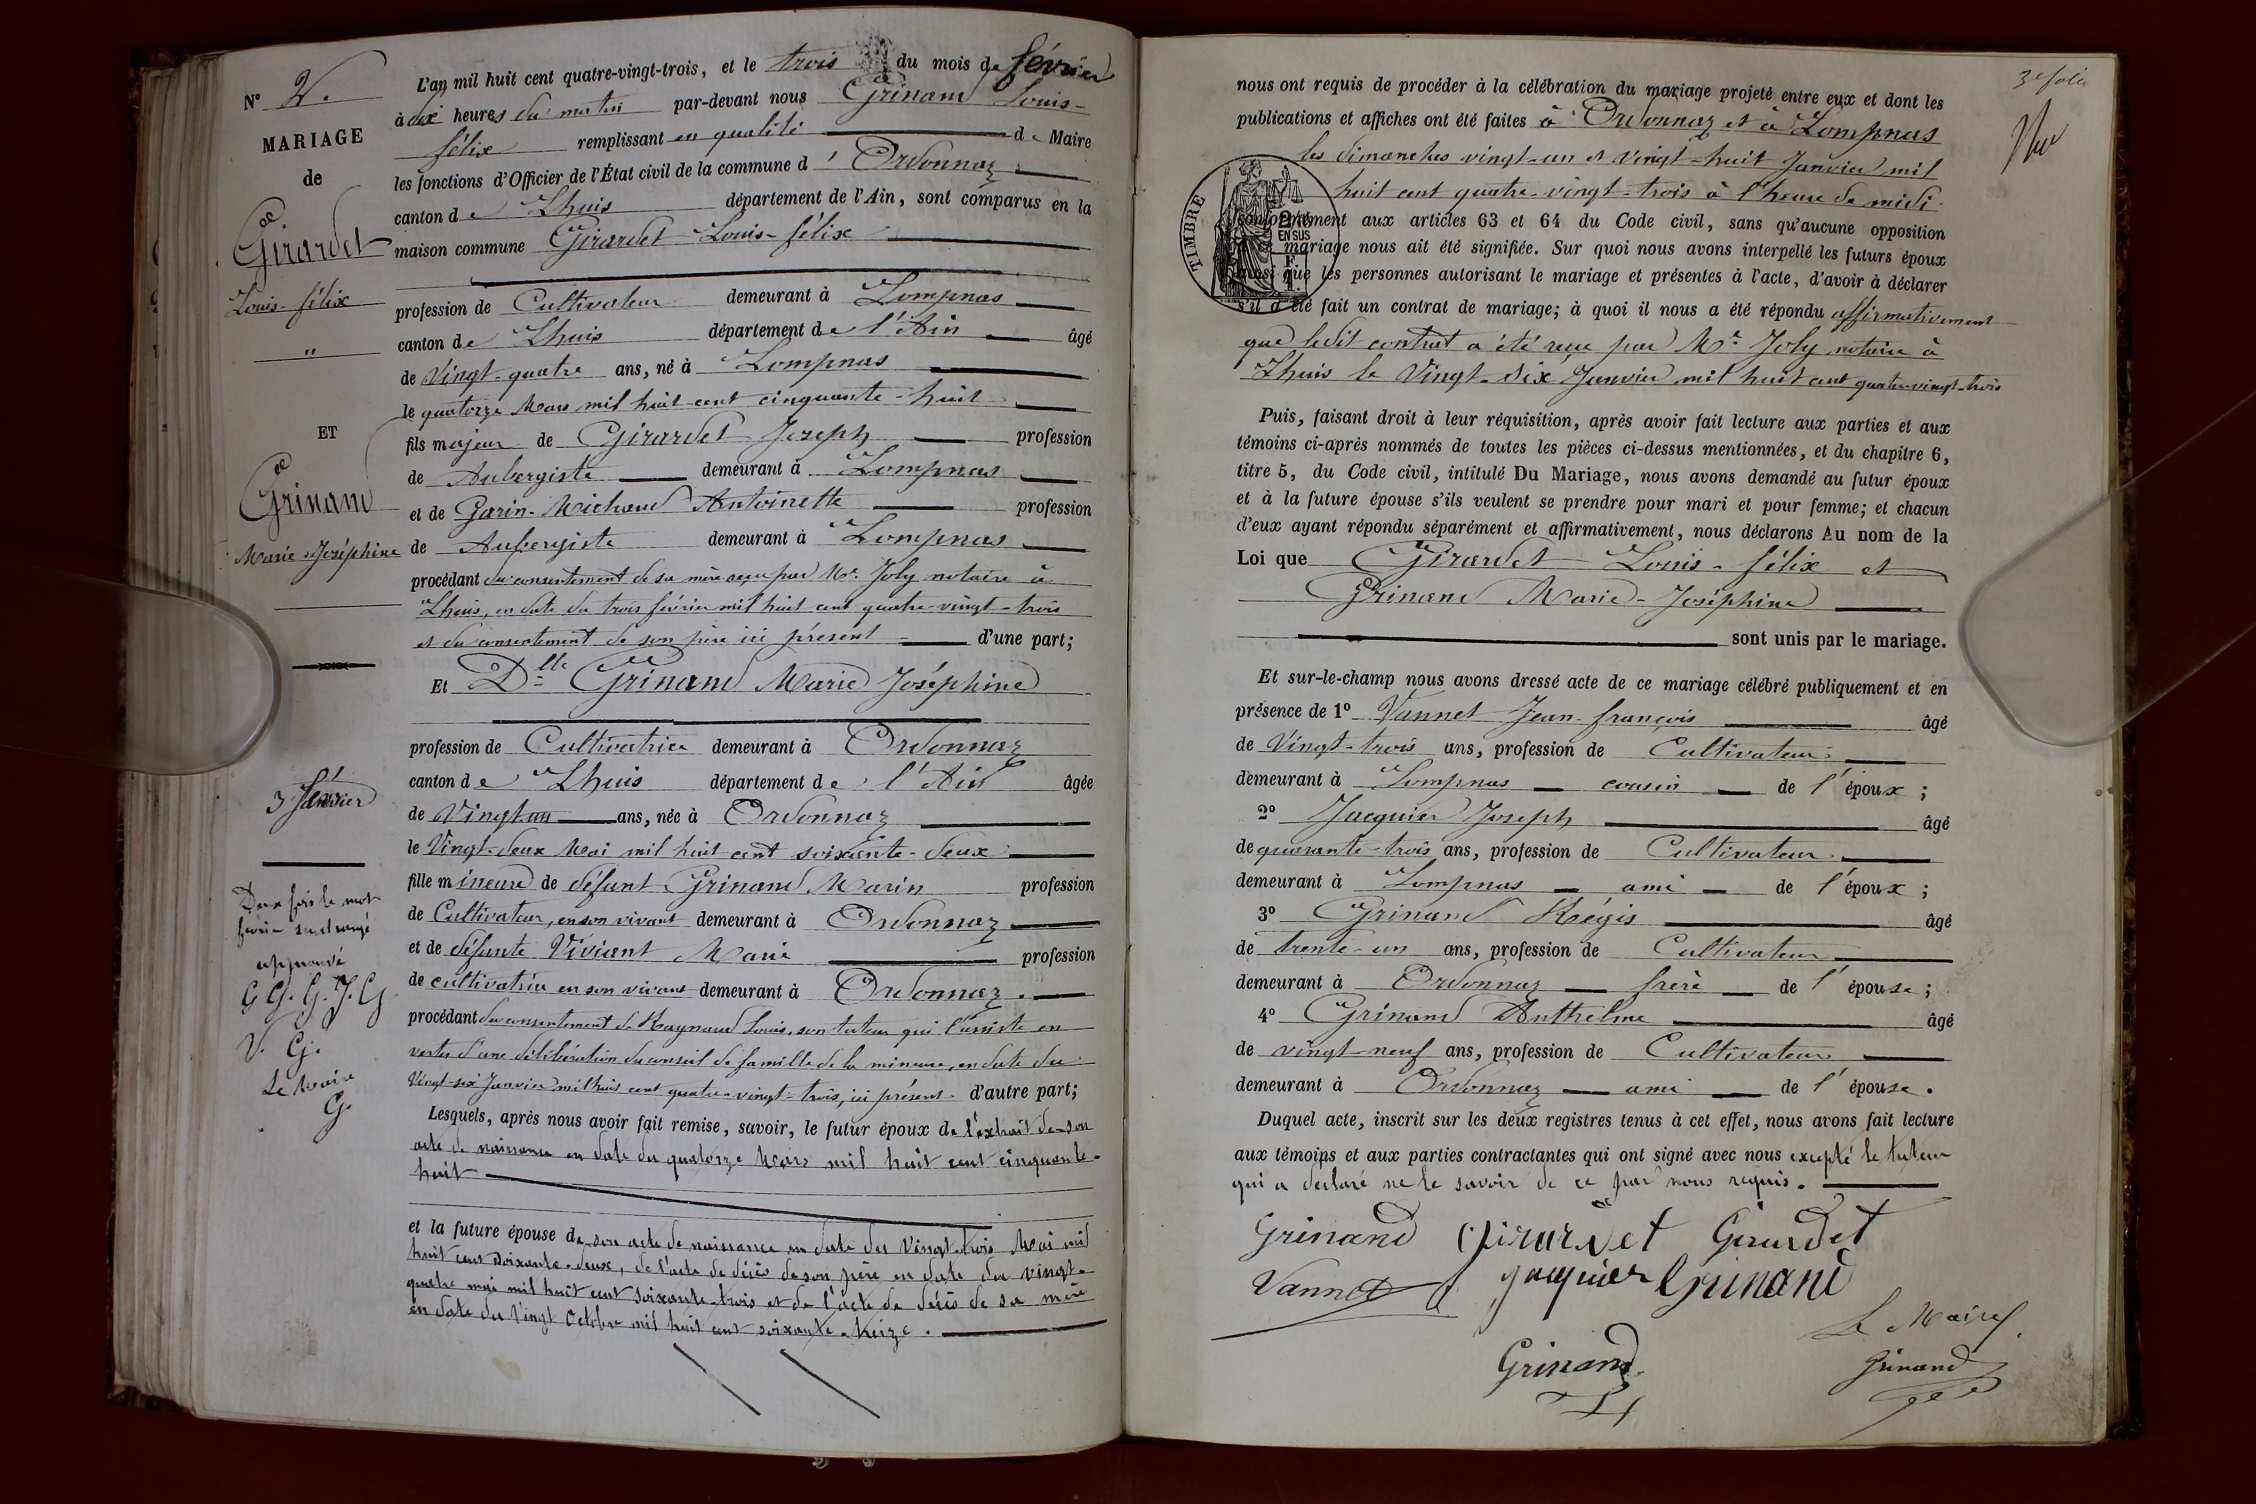 N° 2.
MARIAGE
de
Girardet
Louis-félix
"
ET
Grinand
Marie-Joséphine
3 février
Deux fois le mot
février surchargé
approuvé
G G. G. J. G
V. G.
Le Maire
G.
L'an mil huit cent quatre-vingt-trois, et le trois du mois de février
à dix heures du matin par-devant nous Grinand Louis-
félix remplissant en qualité de Maire
les fonctions d'Officier de l'État civil de la commune d'Ordonnaz
canton de Lhuis département de l'Ain, sont comparus en la
maison commune Girardet Louis-félix
profession de Cultivateur demeurant à Lompnas
canton de Lhuis département de l'Ain âgé
de Vingt-quatre ans, né à Lompnas
le quatorze Mars mil huit cent cinquante-huit
fils majeur de Girardet Joseph profession
de Aubergiste demeurant à Lompnas
et de Garin-Michaud Antoinette profession
de Aubergiste demeurant à Lompnas
procédant du consentement de sa mère reçu par Me. Joly notaire à
Lhuis, en date du trois février mil huit cent quatre-vingt-trois
et du consentement de son père ici présent d'une part;
Et Dlle Grinand Marie Joséphine
profession de Cultivatrice demeurant à Ordonnaz
canton de Lhuis département de l'Ain âgée
de Vingt ans, née à Ordonnaz
le Vingt-deux Mai mil huit cent soixante-deux
fille mineure de défunt Grinand Marin profession
de Cultivateur, en son vivant demeurant à Ordonnaz
et de défunte Vivient Marie profession
de cultivatrice en son vivant demeurant à Ordonnaz.
procédant du consentement de Raynaud Louis, son tuteur qui l'assiste en
vertu d'une délibération du conseil de famille de la mineure, en date du
Vingt-six Janvier mil huit cent quatre-vingt-trois, ici présent d'autre part;
Lesquels, après nous avoir fait remise, savoir, le futur époux de l'extrait de son
acte de naissance en date du quatorze Mars mil huit cent cinquante-
huit
et la future épouse de son acte de naissance en date du Vingt-trois Mai mil
huit cent soixante-deux, de l'acte de décès de son père en date du vingt-
quatre mai mil huit cent soixante-trois et de l'acte de décès de sa mère
en date du Vingt Octobre mil huit cent soixante-treize.
3e folio
nous ont requis de procéder à la célébration du mariage projeté entre eux et dont les
publications et affiches ont été faites à Ordonnaz et à Lompnas
les dimanches vingt-un et Vingt-huit Janvier mil
huit cent quatre-vingt-trois à l'heure de midi
TIMBRE
2/10
EN SUS
F.
1.
conformément aux articles 63 et 64 du Code civil, sans qu'aucune opposition
à ce mariage nous ait été signifiée. Sur quoi nous avons interpellé les futurs époux
ainsi que les personnes autorisant le mariage et présentes à l'acte, d'avoir à déclarer
s'il a été fait un contrat de mariage; à quoi il nous a été répondu affirmativement
que ledit contrat a été reçu par Me. Joly notaire à
Lhuis le Vingt-six Janvier mil huit cent quatre-vingt-trois
Puis, faisant droit à leur réquisition, après avoir fait lecture aux parties et aux
témoins ci-après nommés de toutes les pièces ci-dessus mentionnées, et du chapitre 6,
titre 5, du Code civil, intitulé Du Mariage, nous avons demandé au futur époux
et à la future épouse s'ils veulent se prendre pour mari et pour femme; et chacun
d'eux ayant répondu séparément et affirmativement, nous déclarons Au nom de la
Loi que Girardet Louis-félix et
Grinand Marie-Joséphine
sont unis par le mariage.
Et sur-le-champ nous avons dressé acte de ce mariage célébré publiquement et en
présence de 1° Vannet Jean-françois âgé
de Vingt-trois ans, profession de Cultivateur
demeurant à Lompnas cousin de l'époux;
2° Jacquier Joseph âgé
de quarante-trois ans, profession de Cultivateur
demeurant à Lompnas ami de l'époux;
3° Grinand Régis âgé
de trente-un ans, profession de Cultivateur
demeurant à Ordonnaz frère de l'épouse;
4° Grinand Anthelme âgé
de vingt-neuf ans, profession de Cultivateur
demeurant à Ordonnaz ami de l'épouse.
Duquel acte, inscrit sur les deux registres tenus à cet effet, nous avons fait lecture
aux témoins et aux parties contractantes qui ont signé avec nous excepté le tuteur
qui a déclaré ne le savoir de ce par nous requis.
Grinand Girardet Girardet
Vannet J. Jacquier Grinand
Le Maire
Grinand
Grinand